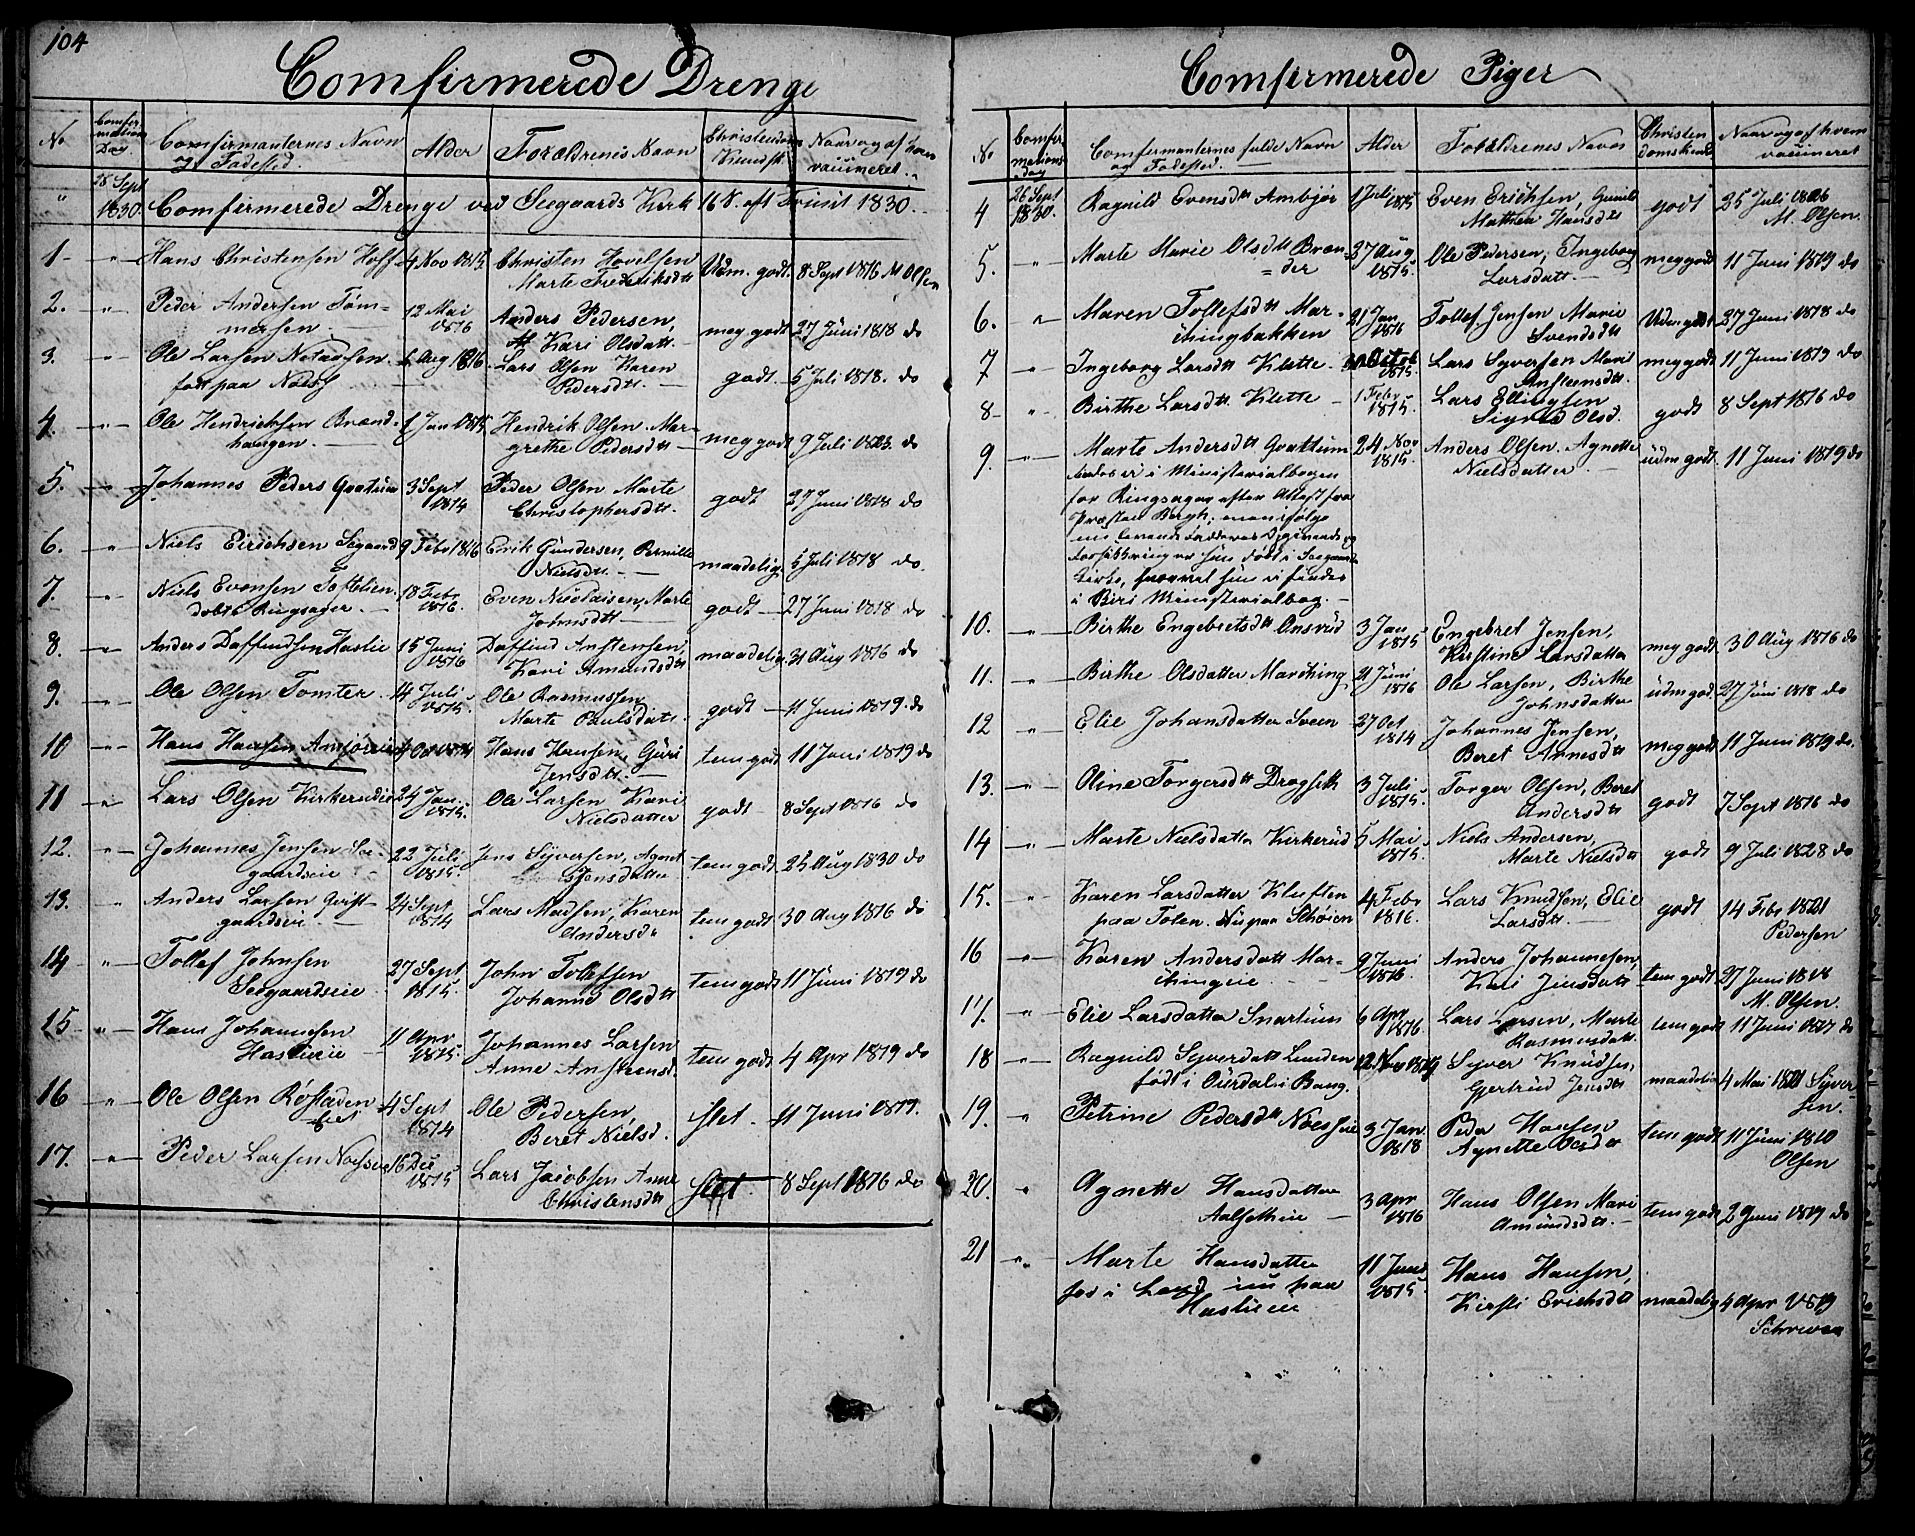 104
Comfirmerede Drenge
No
Comfirmations Dag.
Comfirmanternes Navn og Fødested.
Alder
Forældrenes Navn
Christendoms Kundsk.
Naar og af hvem vaccineret.
" 26 Sept 1830. Comfirmerede Drenge ved Seegaards Kirk 16 S. aft Trinit 1830.
1 - " - Hans Christensen Hoff 4 Nov 1815 Christen Hovelsen Marte Frederiksdtt Udm. godt. 8 Sept 1816 M Olsen
2. - " - Peder Andersen Tømmersen. 12 Mai 1816 Anders Pedersen, Kari Olsdatt. meg godt 27 Juni 1818 do
3. " Ole Larsen født paa Næss 6 Aug 1816 Lars Olsen Karen Pedersdtt. godt. 5 Juli 1818. do
4. - " - Ole Hendrichsen Brændhaugen. 1 Jan 1815 Hendrik Olsen Margrethe Pedersdtt meg godt 9 Juli 1823. do
5. - " - Johannes Peders Grøtum 3 Sept 1814 Peder Olsen Marte Christophersdtt. godt 27 Juni 1818 do
6. - " - Niels Eirichsen Segaard 9 Febr 1816 Erik Gundersen, Pernille Nielsdtt. maadelig 5 Juli 1818 do.
7. - " - Niels Evensen døbt Ringsager. 18 Febr 1816. Even Nicolaisen, Marte Johnsdtt godt 27 Juni 1818 do
8. - " - Anders Daffindsen Haslie 15 Juni 1816 Daffind Anstensen, Kari Amundsdtt maadelig 31 Aug 1816 do
9. - " - Ole Olsen Tomter 14 Juli 1815. Ole Rasmussen Marte Paulsdatt. godt 11 Juni 1819. do
10 - " - Hans Hansen 4 Oct 1814 Hans Hansen, Guri Jensdtt. tem godt 11 Juni 1819 do
11 - " - Lars Olsen Kirkerudeie 24 Jan. 1815. Ole Larsen Kari Nielsdatter godt 8 Sept 1816 do
12. - " - Johannes Jensen Seegaardseie 22 Juli 1815. Jens Syversen, Agnet Jensdatter tem godt 25 Aug 1830 do
13. " Anders Larsen gaardseie. 24 Sept 1814 Lars Madsen, Karen Andersd tem godt 30 Aug 1816 do
14 - " - Tollef Johnsen Seegaardseie 27 Sept 1815. John Tollefsen Johanne Olsdtt tem godt 11 Juni 1819 do
15 - " - Hans Johannesen Haslieeie 11 Apr 1815. Johannes Larsen Anne Anstensd. tem godt 4 Apr 1819 do
16 " Ole Olsen Røstadeneiet 4 Sept 1814 Ole Pedersen, Beret Nielsd. slet. 11 Juni 1819.
17. - " - Peder Larsen Næsseie 16 Dec 1815 Lars Jacobsen Anne Christensdtt slet. 8 Sept 1816 do
Comfirmerede Piger
No
Comfirmations Dag
Comfirmanternes fulde Navn og Fødested.
Alder
Forældrenes Navne
Christendomskundsk
Naar og af hvem vaccineret
4 26 Sept 1830. Ragnild Evensdtt Ambjør 1 Juli 1815 Even Erichsen, Gunild Mathea Hansdtt godt 25 Juli 1826 M. Olsen.
5. " Marte Marie Olsdtt Brænder 27 Aug 1815. Ole Pedersen, Ingeborg Larsdatt. meg godt 11 Juni 1819 do
6. " Maren Tollefsdtt Marchingbakken 21 Jan 1816 Tollef Jensen Marie Svendsdtt Udm godt 27 Juni 1818 do
7 - " - Ingeborg Larsdtt Klette Octob 1815. Lars Syversen Mari Anstensdtt. meg godt 11 Juni 1819 do
8 - " - Birthe Larsdtt Klette 1 Febr 1815. Lars Ellingsen Sigrid Olsd. godt 8 Sept 1816 do
9. - " - Marte Andersdtt Grøttum 24 Nov 1815. Anders Olsen. Agnette Nielsdatter udm godt. 11 Juni 1819 do
i Ministerialbogen
for Ringsager efter Attest fra
Præsten Bergh; men ifølge
Forældrenes Opgivende og
Forsikkringer hun født i Seegaards
Kirke, hun ei findes
i Biri Ministerialbog.
10. - " - Birthe Engebretsdtt Onsrud 3 Jan 1815 Engebret Jensen, Kirstine Larsdatter meg godt 30 Aug 1816 do
11. - " - Birthe Olsdatter Marching 21 Juni 1816 Ole Larsen, Birthe Johnsdatter udm god. 27 Juni 1818 do
12 - " - Elie Johansdatter Sveen 27 Oct 1814 Johannes Jensen, Beret Arnesdtt meg godt 11 Juni 1819 do.
13. - " - Oline Torgersdtt Dragseth 3 Juli 1815. Torger Olsen, Beret Andersdtt godt 7 Sept 1816 do
14 - " - Marte Nielsdatter Kirkerud 5 Mai 1815. Niels Andersen, Marte Nielsd godt 9 Juli 1828 do
15. " Karen Larsdatter Kluften paa Toten. Nu paa Schøien 4 Febr 1816. Lars Knudsen, Elie Larsdtt. godt 14 Febr 1821 Pedersen
16 - " - Karen Andersdatt Marchingeie 9 Juni 1816 Anders Johannesen, Kari Jensdatt tem godt 27 Juni 1818 M. Olsen.
17. " Elie Larsdatter Snartum 6 Apr 1816. Lars Larsen, Marte Rasmusdatt. tem godt 11 Juni 1817 do
18 - " - Ragnild Syverdatt Lunden født i Ourdal i Bang. 12 Nov Syver Knudsen, Gjertrud Jensdtt maadelig 4 Mai 1821 Syversen.
19. " Petrine Pedersdtt Næsseie 3 Jan. 1818 Peder Hansen Agnette tem godt 11 Juni 1810 Olsen
20. " Agnette Hansdatter Aalsetheie 3 Apr 1816 Hans Olsen Mari Amundsdtt. tem godt 2 Juni 1819 do
21 - " - Marte Hansdatter før i Land nu paa Haslieeie 11 Juni 1815. Hans Hansen, Kirsti Erichsdtt maadelig 4 Apr 1819